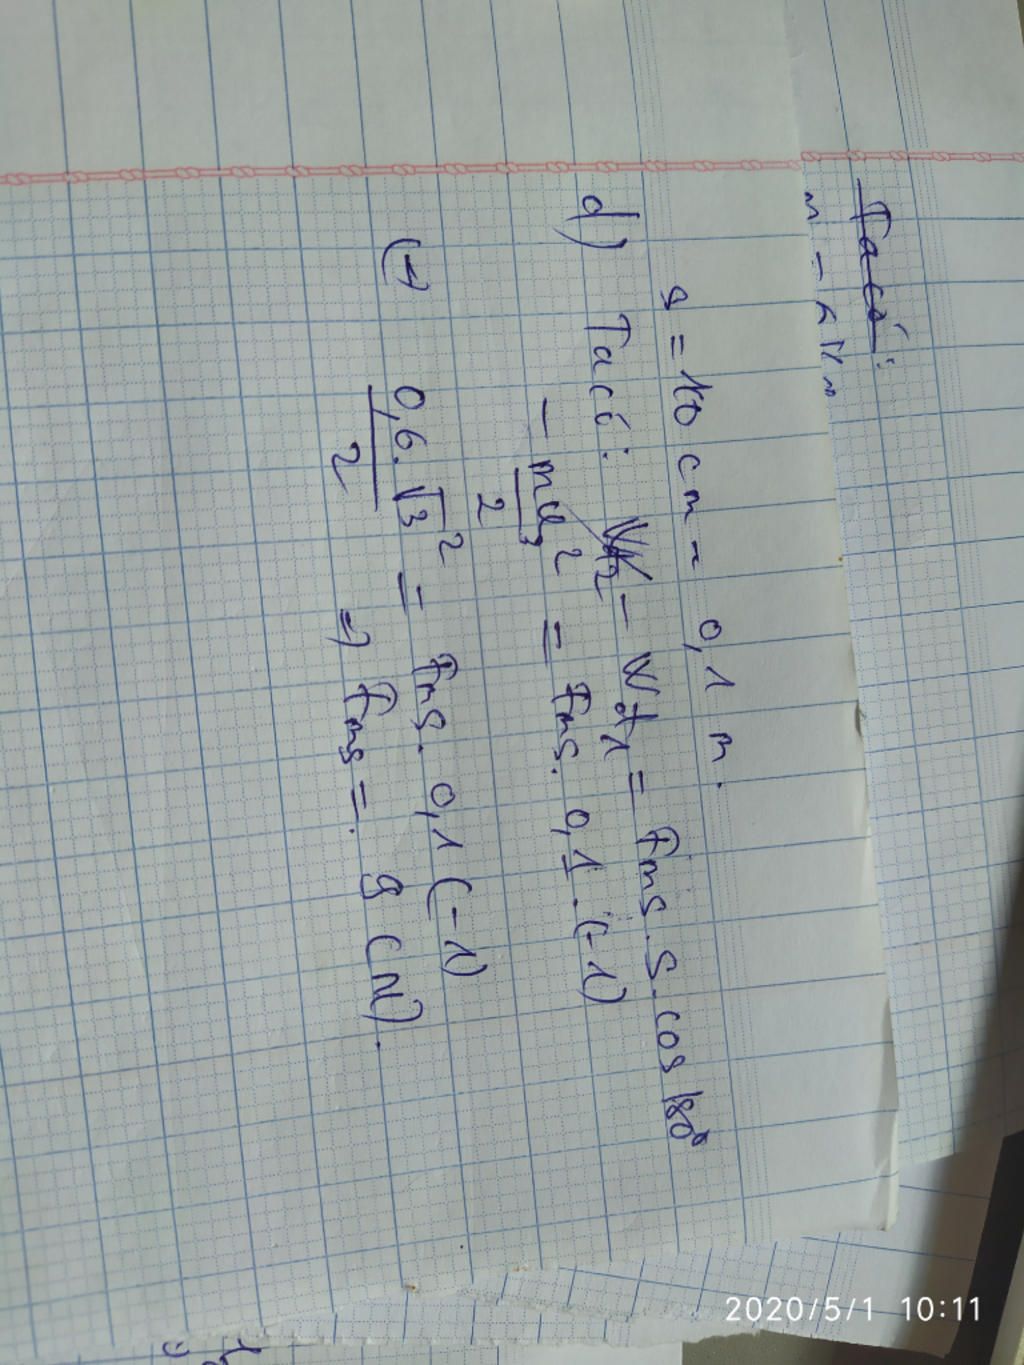 Ta có:
s = 10 cm = 0,1 m.
d) Ta có: Wđ2 - Wđ1 = Fms. S. cos 180°
- mv3² / 2 = Fms. 0,1. (-1)
(→) 0,6. √3² / 2 = Fms. 0,1 (-1)
=) Fms = 9 (N).
2020/5/1 10:11